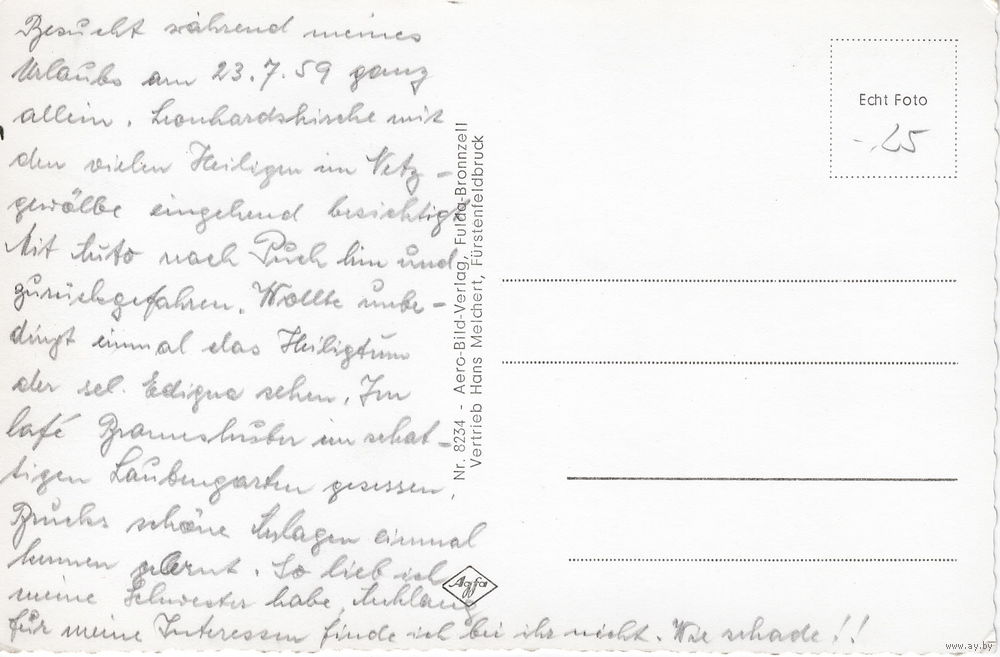 Besucht während meines
Urlaubs am 23.7.59 ganz
allein. Leonhardskirche mit
den vielen Heiligen im Netz-
gewölbe eingehend besichtigt.
Mit Auto nach Puch hin und
zurückgefahren. Wollte unbe-
dingt einmal das Heiligtum
der sel. Edigna sehen. Im
Café im schat-
tigen Laubengarten gesessen.
Brucks schöne Anlagen einmal
kennen gelernt. So lieb ich
meine Schwester habe, Anklang
für meine Interessen finde ich bei ihr nicht. Wie schade!!
Nr. 8234 - Aero-Bild-Verlag, Fulda-Bronnzell
Vertrieb Hans Melchert, Fürstenfeldbruck
Agfa
Echt Foto
-.25
www.ay.by